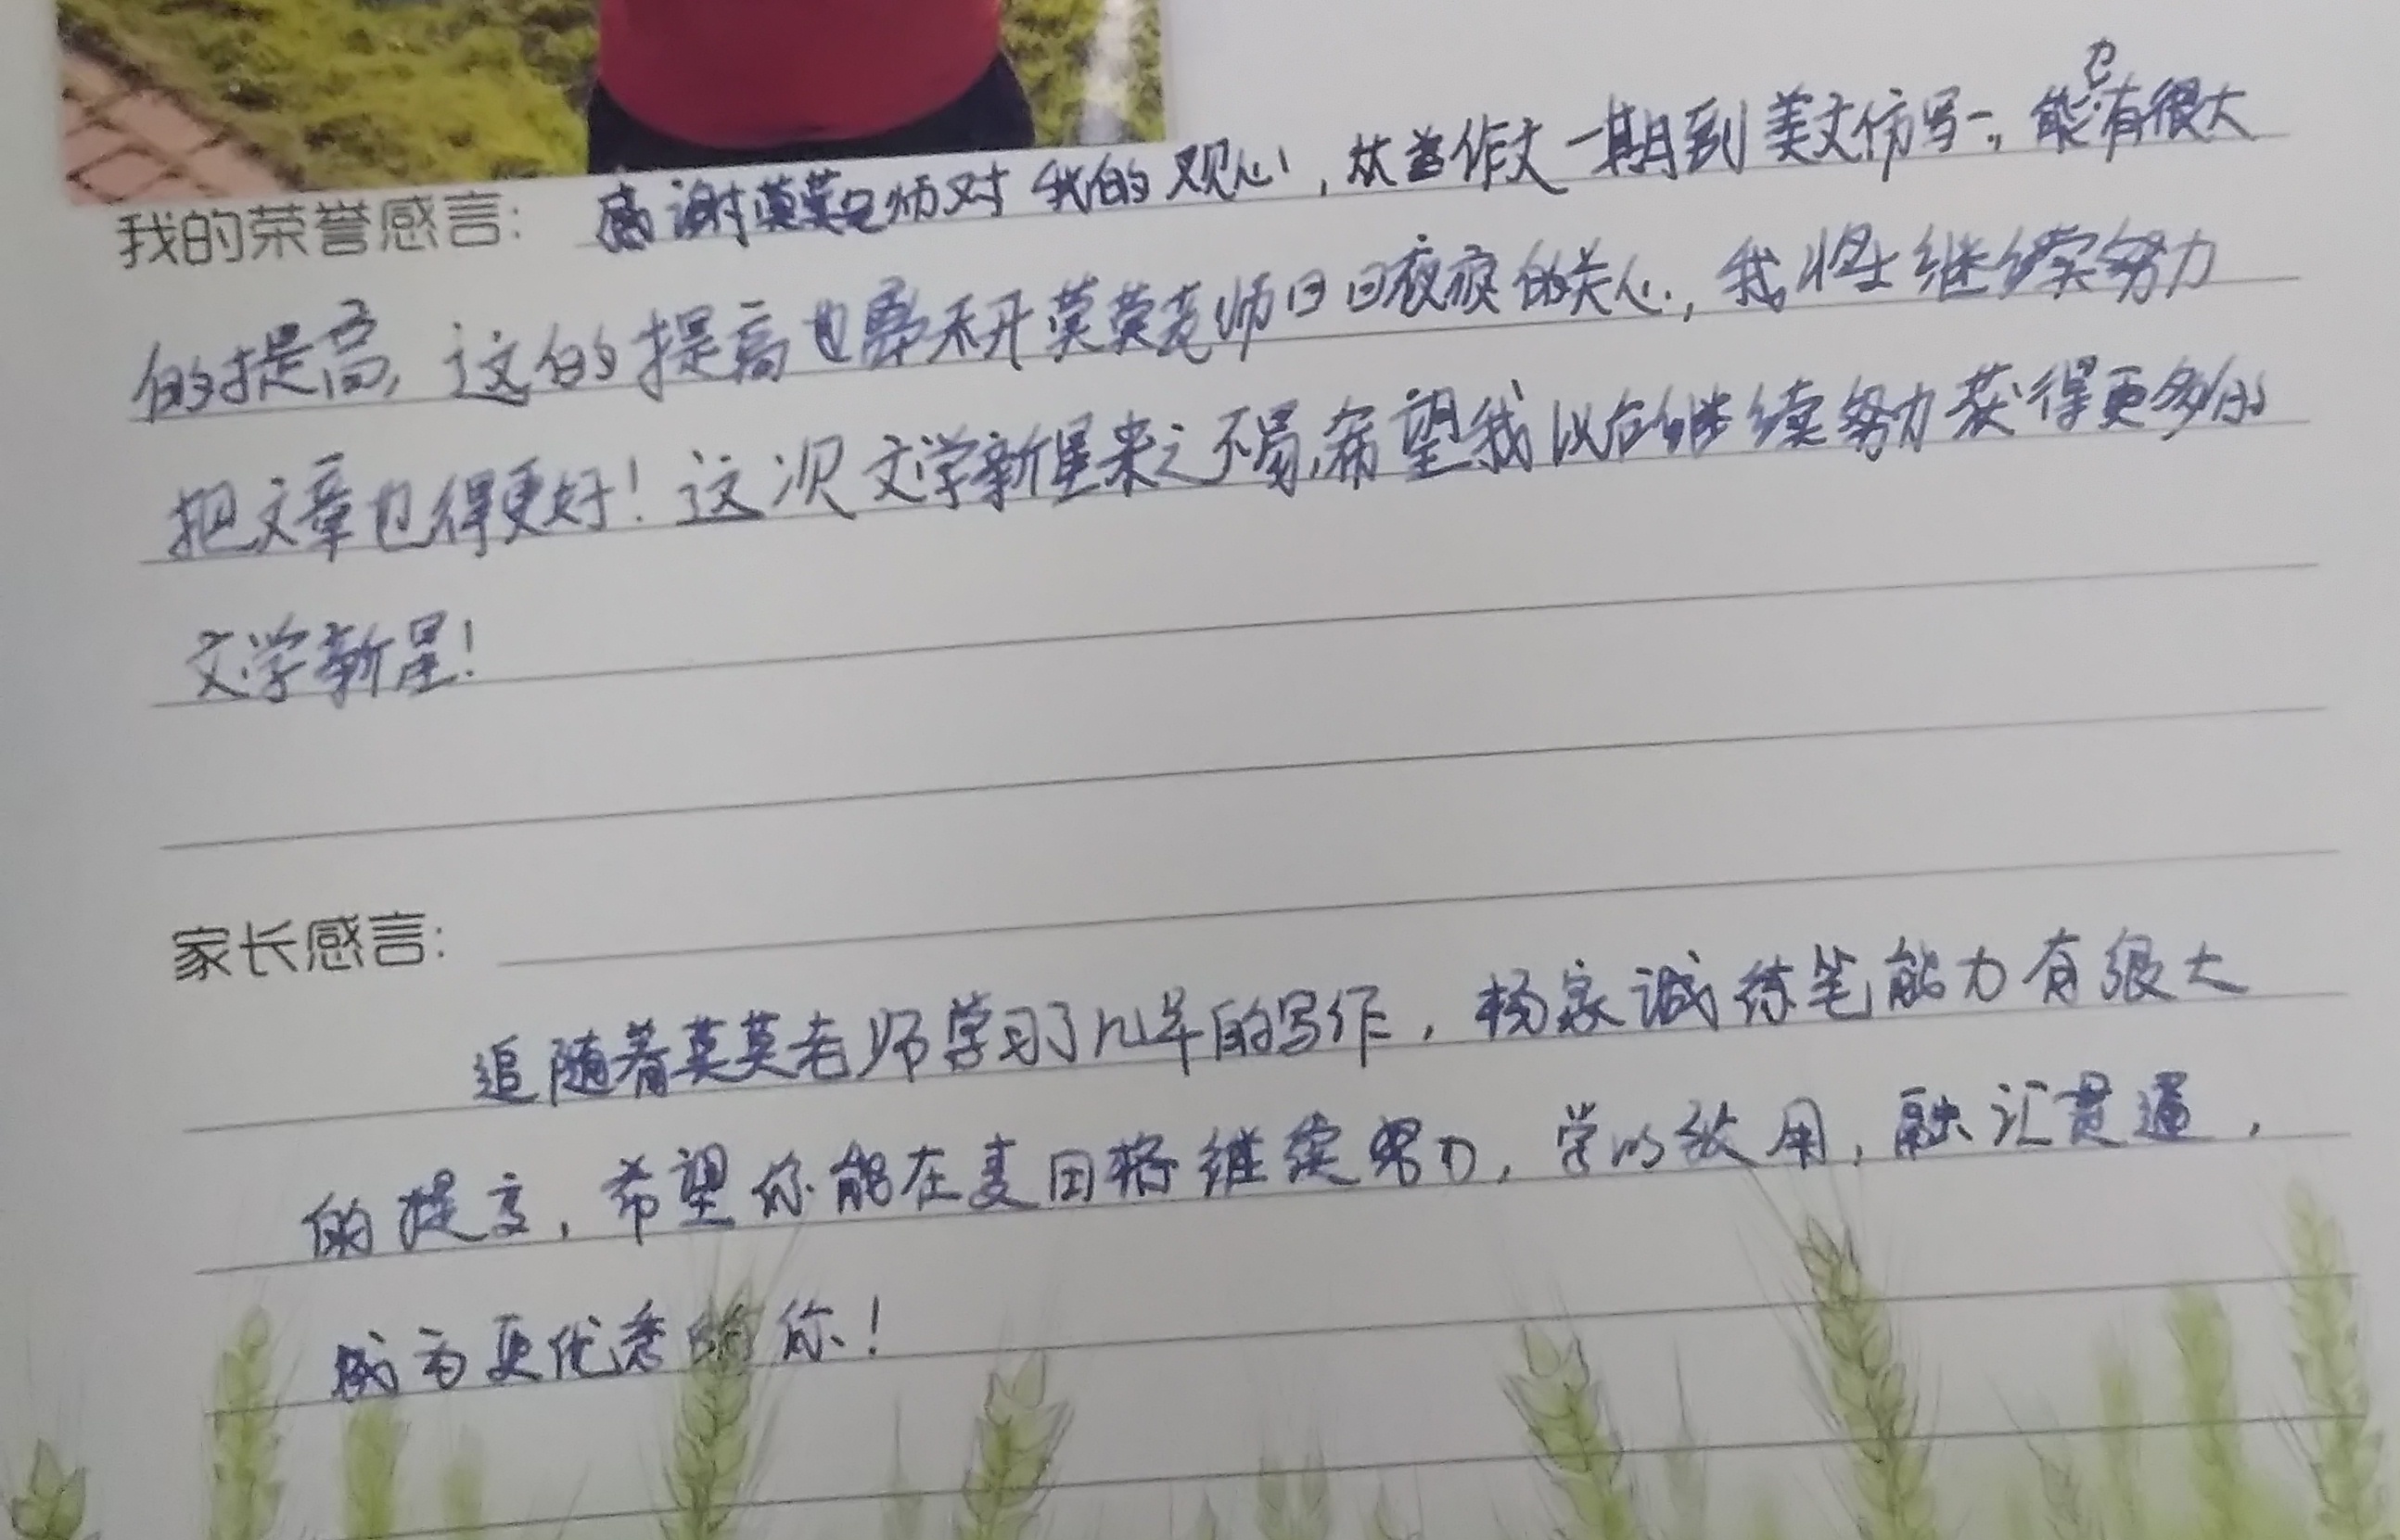 我的荣誉感言: 感谢莫莫老师对我的观心,从当作文一期到美文仿写一,能有很大
的提高,这的提高也离不开莫莫老师日日夜夜的关心,我将继续努力
把文章也得更好!这次文学新星来之不易,希望我以后继续努力获得更多的
文学新星!
家长感言:
追随着莫莫老师学习了几年的写作,杨家诚练笔能力有很大
的提高,希望你能在麦田将继续努力,学以致用,融汇贯通,
成为更优秀的你!